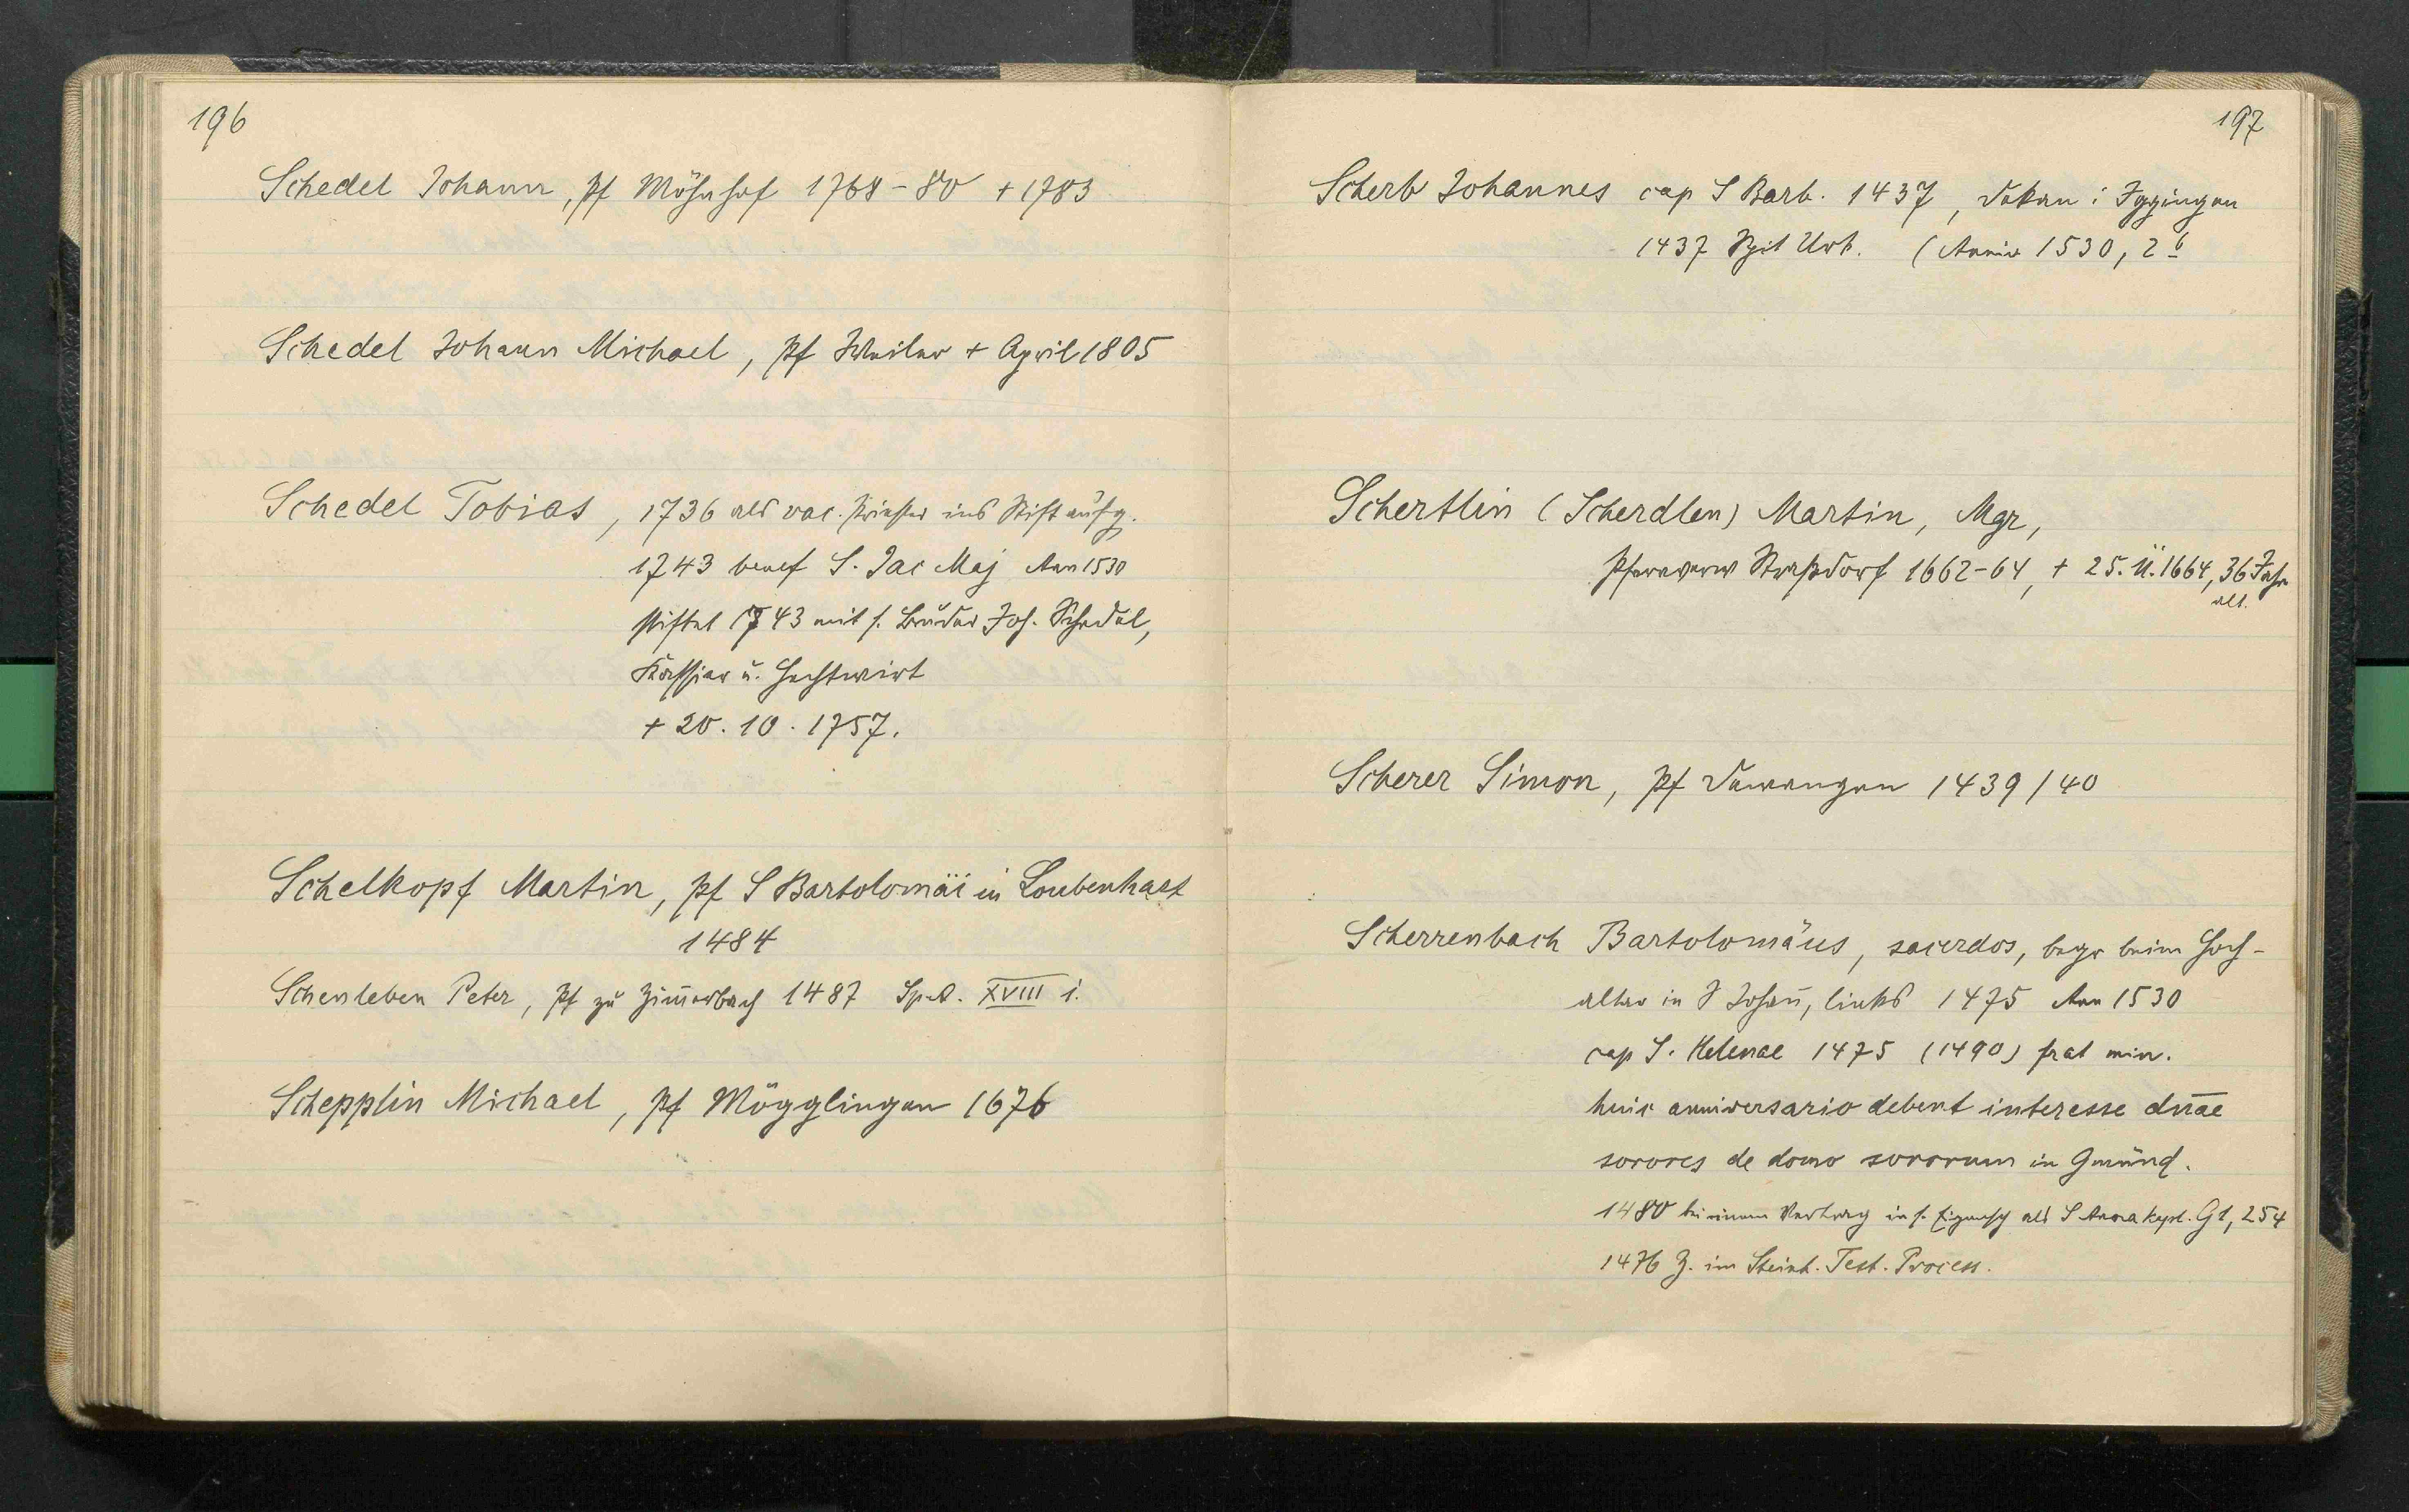 196
Schedel Johann, Pf Möhnhof 1768-80 + 1783
Schedel Johann Michael, Pf Weiler + April 1805
Schedel Tobias, 1736 als vac. Priester ins Stift aufg.
1743 benef S. Jac Maj Ann 1530
stiftet 1743 mit s. Bruder Jos. Schedel,
Kassier u. Hechtwirt
+ 20.10.1757.
Schelkopf Martin, Pf S Bartolomäi in Loubenhart
1484
Schenleben Peter, Pf zu Zim̅erbach 1487 Sp.A. XVIII i.
Schepplin Michael, Pf Mögglingen 1676
197
Scherb Johannes cap S Barb. 1437, Dekan i Iggingen
1437 Spit Urk. (Anniv 1530, 2 b
Schertlin (Scherdlen) Martin, Mgr,
Pfarrverw Straßdorf 1662-64, + 25. 1664, 36 Jahr
alt.
Scherer Simon, Pf Dewangen 1439/40
Scherrenbach Bartolomäus, sacerdos, begr beim Hoch-
altar in S Johan̅, links 1475 Ann 1530
cap S. Helenae 1475 (1490) frat min.
huic anniversario debent interesse dn̅ae
sorores de domo sororum in Gmünd.
1480 bei einem Vertrag in s. Eigensch als S Anna Kapl. G1, 254
1476 Z. im Steinh. Test. Process.